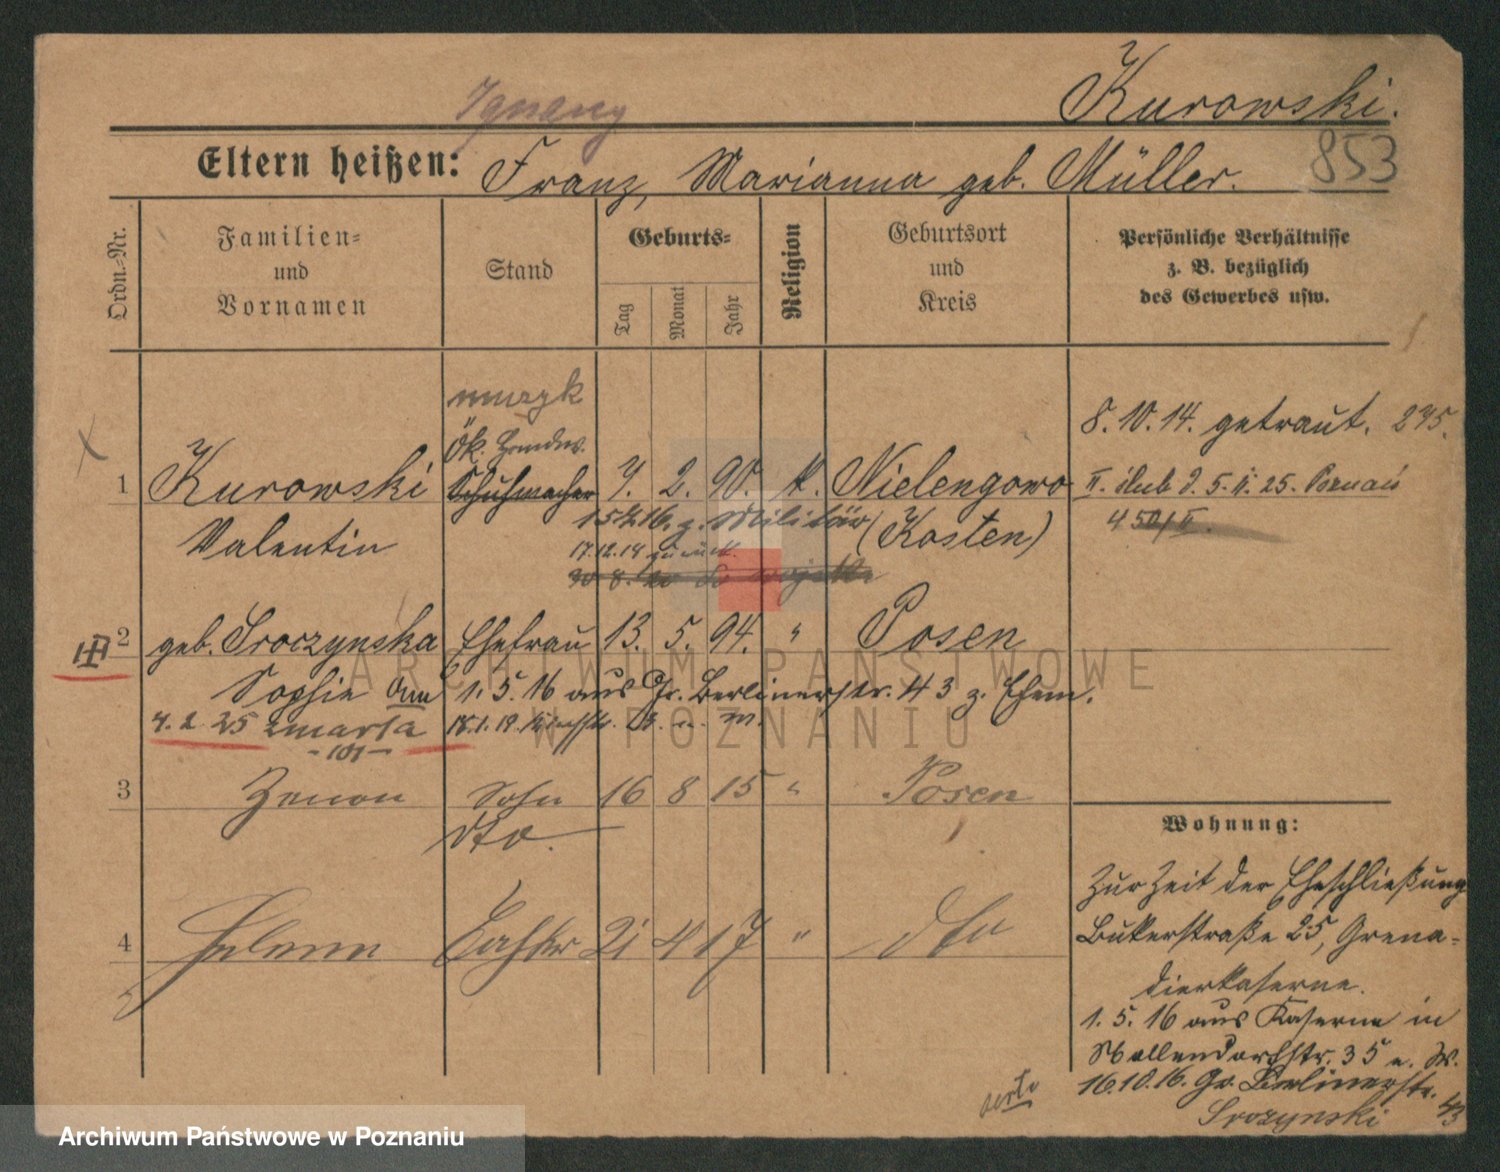 Ignacy
Kurowski.
Eltern heißen: Franz, Marianna geb. Müller.
853
Ordn.-Nr.
Familien-
und
Vornamen
Stand
Geburts-
Tag
Monat
Jahr
Religion
Geburtsort
und
Kreis
Persönliche Verhältnisse
z. B. bezüglich
des Gewerbes usw.
muzyk
8. 10. 14. getraut. 275.
Ök. Handw.
1 Kurowski Schuhmacher 7. 2. 90. k. Nielengowo
II. ślub d. 5. II. 25. Poznań
450/II.
Valentin
16. z. Militär (Kosten)
17.12.18 zurück.
2 geb. Sroczynska Ehefrau 13. 5. 94. " Posen
Sophie 1. 5. 16 aus Gr. Berlinerstr. 43 z. Ehem.
4. 2. 25 zmarła
-101-
3 Zenon Sohn 16 8 15 " Posen
dto.
4 Helene Tochter 21 4 17 " dto
Wohnung:
Zur Zeit der Eheschließung
Bukerstraße 25, Grena-
dierkaserne.
1. 5. 16 aus Kaserne in
Möllendorfstr. 35 n. W.
16.10.16. Gr. Berlinerstr.
43
Sroczynski
verte
ARCHIWUM PAŃSTWOWE
W POZNANIU
Archiwum Państwowe w Poznaniu